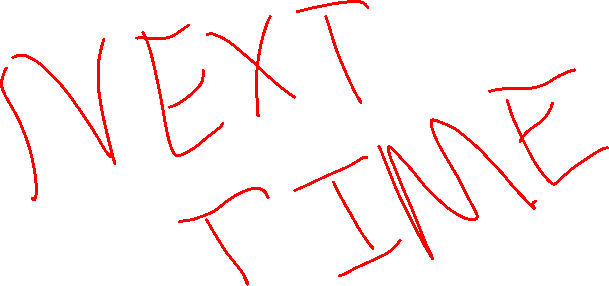 NEXT
TIME